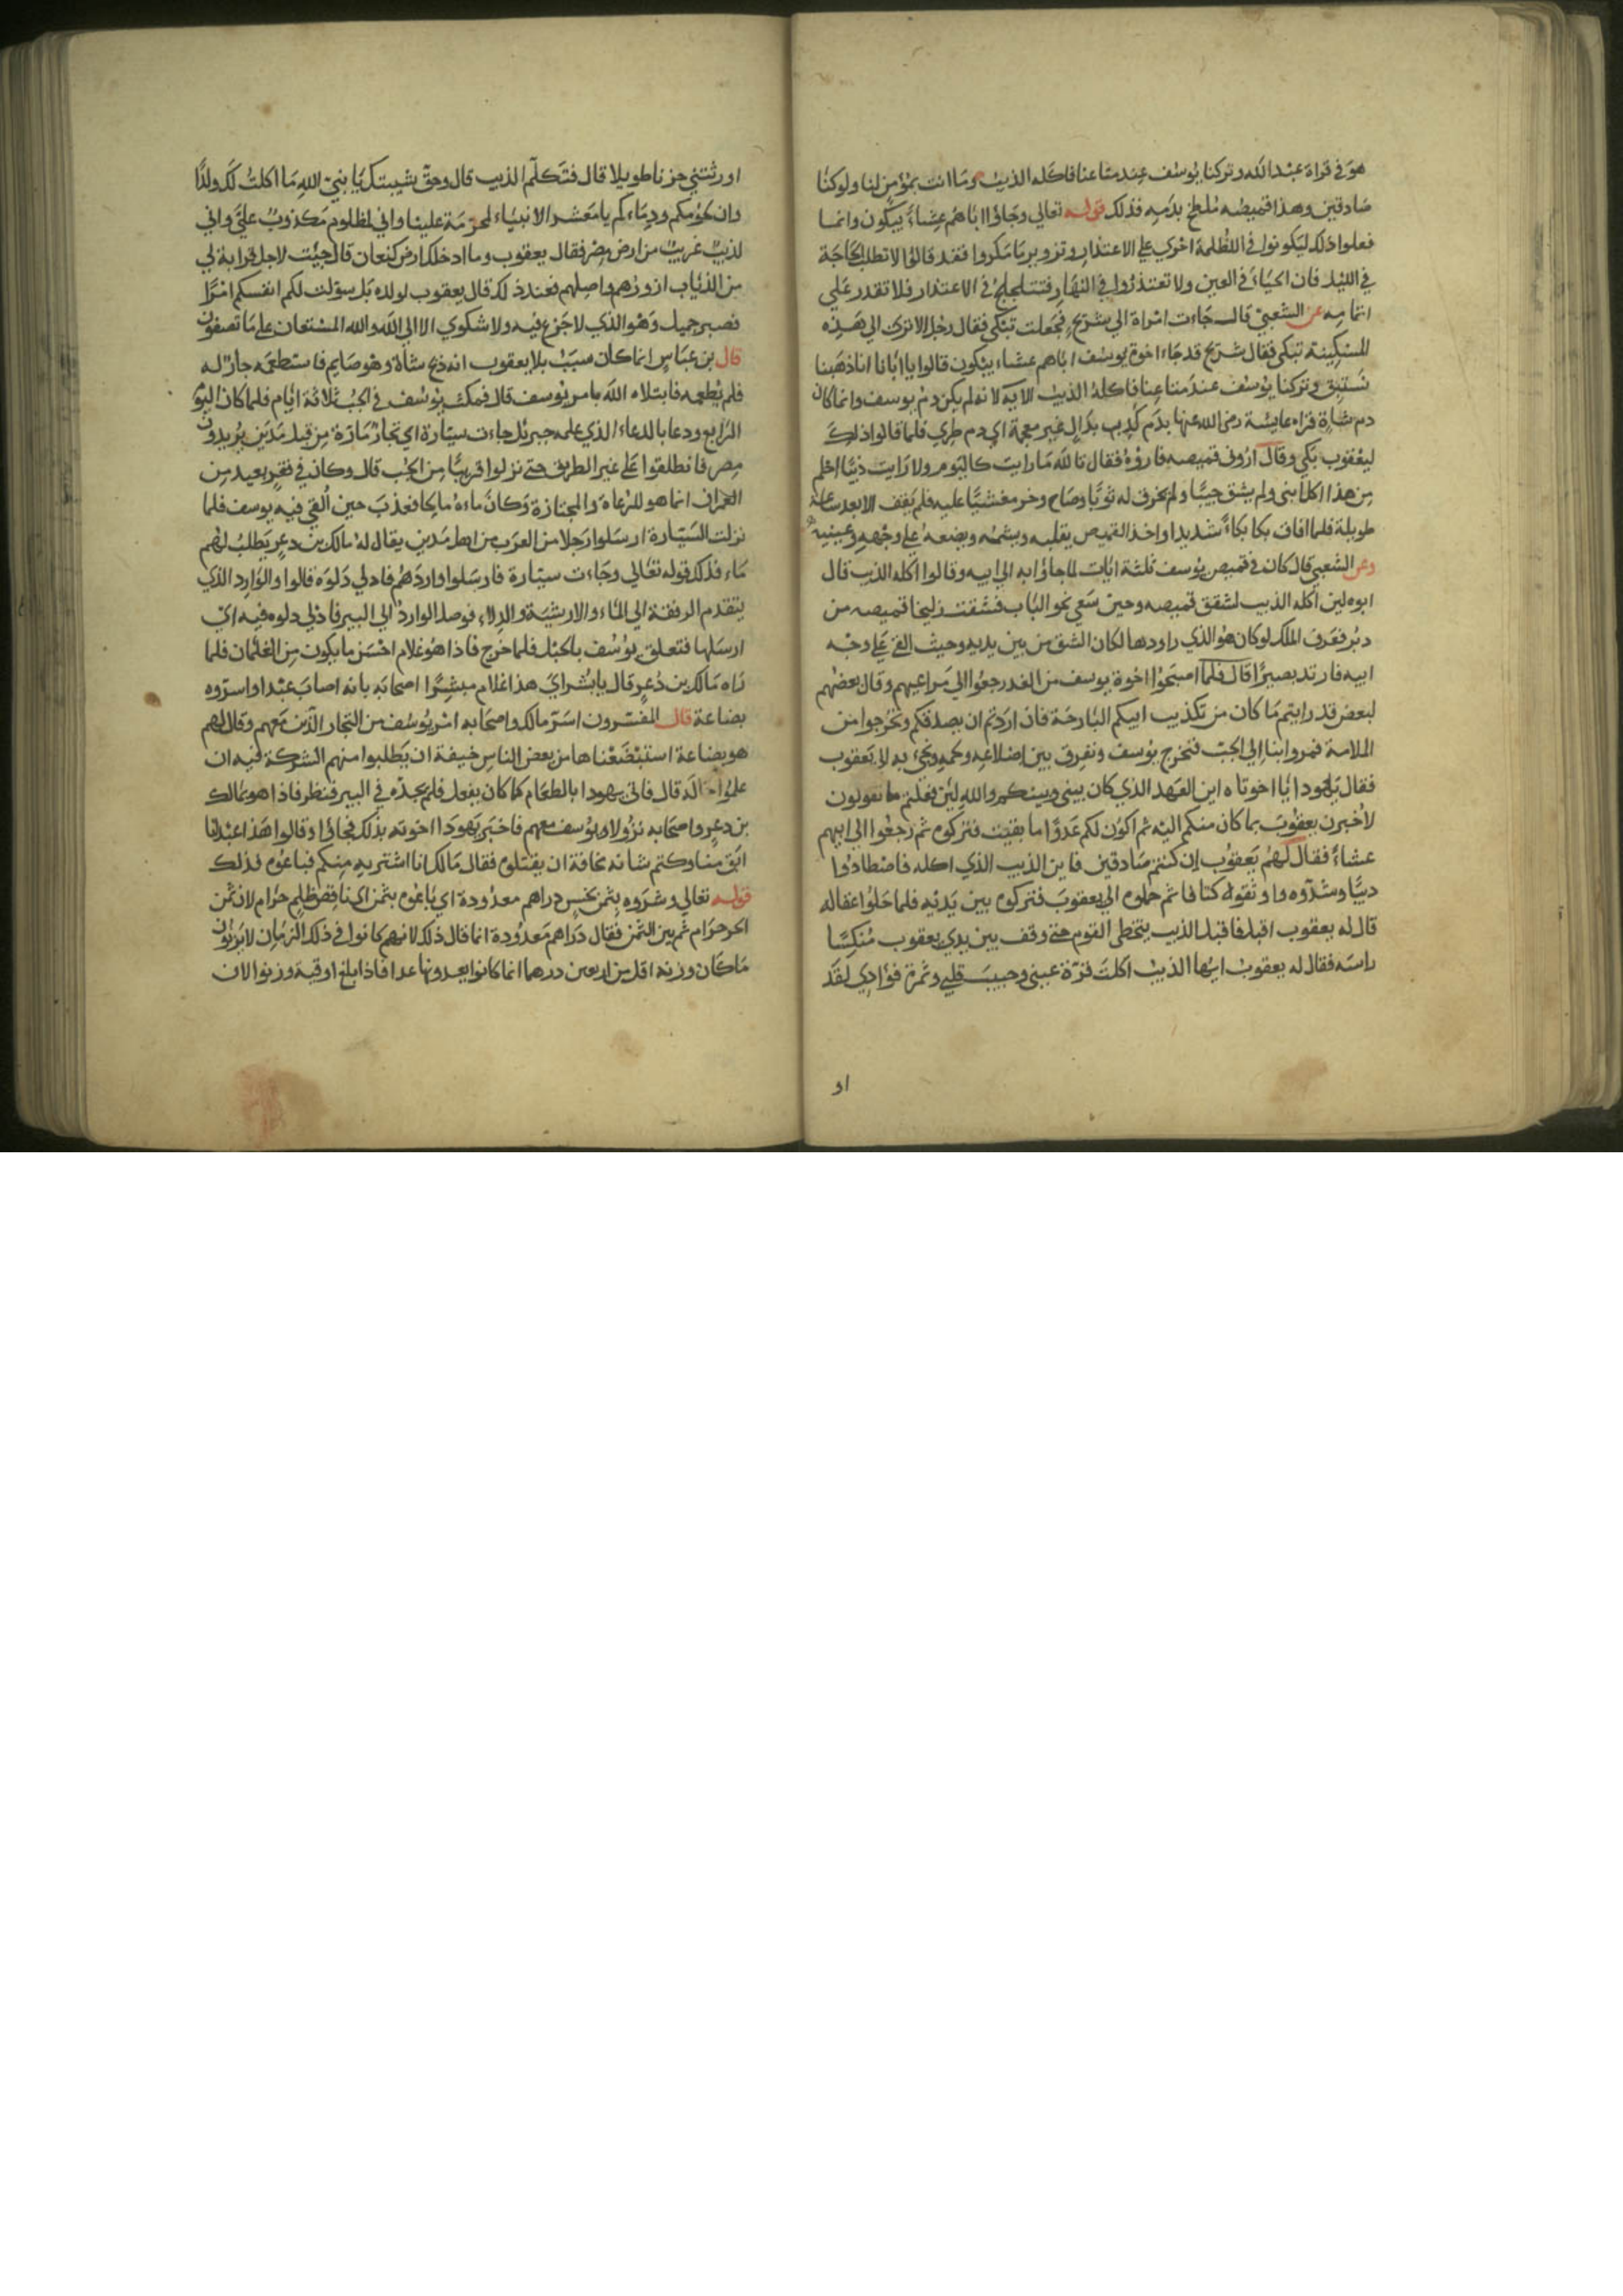 هو في قراة عبد الله وتركنا يوسف عند متاعنا فاكله الذيب وما انت بمؤمن لنا ولو كنا
صادقين وهذا قميصه ملطخ بدمه فذلك قوله تعالي وجاؤا اباهم عشاء يبكون وانما
فعلوا ذلك ليكونوا في الظلمة اجري علي الاعتذار وتزوير ما مكروا فقد قالوا لا تطلب الحاجة
في الليل فان الحياء في العين ولا تعتذروا في النهار فتتلجلج في الاعتذار فلا تقدر علي
اتمامه عن الشعبي قال جاءت امراة الي شريح فجعلت تبكي فقال رجل الا تري الي هذه
المسكينة تبكي فقال شريح قد جاء اخوة يوسف اباهم عشاء يبكون قالوا يا ابانا انا ذهبنا
نستبق وتركنا يوسف عند متاعنا فاكله الذيب الاية لانه لم يكن دم يوسف وانما كان
دم شاة قراة عايشة رضى الله عنها بدم كدب بدال غير معجمة اي دم طري فلما قالوا ذلك
ليعقوب بكي وقال اروني قميصه فاروه فقال تالله ما رايت كاليوم ولا رايت ذيبا احلم
من هذا اكل ابني ولم يشق جيبا ولم يخرق له ثوبا وصاح وخر مغشيا عليه فلم يفق الا بعد ساعة
طويلة فلما افاق بكا بكاء شديدا واخذ القميص يقلبه ويشمه ويضعه علي وجهه وعينيه
وعن الشعبي قال كان في قميص يوسف ثلثة ايات لما جاؤا به الي ابيه وقالوا اكله الذيب قال
ابوه لين اكله الذيب لشقق قميصه وحين سعي نحو الباب فشقت زليخا قميصه من
دبر فعرف الملك لو كان هو الذي راودها لكان الشق من بين يديه وحيث القي علي وجه
ابيه فارتد بصيرا قال فلما اصبحوا اخوة يوسف من الغد رجعوا الي مراعيهم وقال بعضهم
لبعض قد رايتم ما كان من تكذيب ابيكم البارحة فان اردتم ان يصدقكم وتخرجوا من
الملامة فمروا بنا الي الجب فنخرج يوسف ونفرق بين اضلاعه ولحمه ونجيء به الي يعقوب
فقال يهودا يا اخوتاه اين العهد الذي كان بيني وبينكم والله لين فعلتم ما تقولون
لاخبرن يعقوب بما كان منكم اليه ثم اكون لكم عدوا ما بقيت فتركوه ثم رجعوا الي ابيهم
عشاء فقال لهم يعقوب ان كنتم صادقين فاين الذيب الذي اكله فاصطادوا
ذيبا وشدوه واوثقوه كتافا ثم حملوه الي يعقوب فتركوه بين يديه فلما حلوا عقاله
قال له يعقوب اقبل فاقبل الذيب يتخطي القوم حتي وقف بين يدي يعقوب منكسا
راسه فقال له يعقوب ايها الذيب اكلت قرة عيني وحبيب قلبي وثمرة فؤادي لقد
او
اورثتني حزنا طويلا قال فتكلم الذيب قال وحق شيبتك يا نبي الله ما اكلت لك ولدا
وان لحومكم ودماءكم يا معشر الانبياء لمحرمة علينا واني لمظلوم مكذوب علي واني
لذيب غريب من ارض مصر فقال يعقوب وما ادخلك ارض كنعان قال جيت لاجل قرابة لي
من الذئاب ازورهم واصلهم فعند ذلك قال يعقوب لولده بل سولت لكم انفسكم امرا
فصبر جميل وهو الذي لا جزع فيه ولا شكوي الا الي الله والله المستعان علي ما تصفون
قال بن عباس انما كان سبب بلا يعقوب انه ذبح شاة وهو صايم فاستطعمه جار له
فلم يطعمه فابتلاه الله بامر يوسف قال فمكث يوسف في الجب ثلاثة ايام فلما كان اليوم
الرابع ودعا بالدعاء الذي علمه جبريل جاءت سيارة اي تجار مارة من قبل مدين يريدون
مصر فانطلقوا علي غير الطريق حتي نزلوا قريبا من الجب قال وكان في قفر بعيد من
العمران انما هو للرعاة والمجتازة وكان ماءه مالحا فعذب حين القي فيه يوسف فلما
نزلت السيارة ارسلوا رجلا من العرب من اهل مدين يقال له مالك بن دعر يطلب لهم
ماء فذلك قوله تعالي وجاءت سيارة فارسلوا واردهم فادلي دلوه قالوا والوارد الذي
يتقدم الرفقة الي الماء والارشية والدلاء فوصل الوارد الي البير فادلي دلوه فيه اي
ارسلها فتعلق يوسف بالحبل فلما خرج فاذا هو غلام احسن ما يكون من الغلمان فلما
راه مالك بن دعر قال يا بشراي هذا غلام مبشرا اصحابه بانه اصاب عبدا واسروه
بضاعة قال المفسرون اسر مالك واصحابه امر يوسف من التجار الذين معهم وقال لهم
هو بضاعة استبضعناها من بعض الناس خيفة ان يطلبوا منهم الشركة فيه ان
علموا قال فاتي يهودا بالطعام كما كان يفعل فلم يجده في البير فنظر فاذا هو بمالك
بن دعر واصحابه نزولا ويوسف معهم فاخبر يهودا اخوته بذلك فجاؤا وقالوا هذا عبدنا
ابق منا وكتم شانه مخافة ان يقتلوه فقال مالك انا اشتريه منكم فباعوه فذلك
قوله تعالي وشروه بثمن بخس دراهم معدودة اي باعوه بثمن اي ناقص ظلم حرام لان ثمن
الحر حرام ثم بين الثمن فقال دراهم معدودة انما قال ذلك لانهم كانوا في ذلك الزمان لا يزنون
ما كان وزنه اقل من اربعين درهما انما كانوا يعدونها عدا فاذا بلغ اوقية وزنوا لان